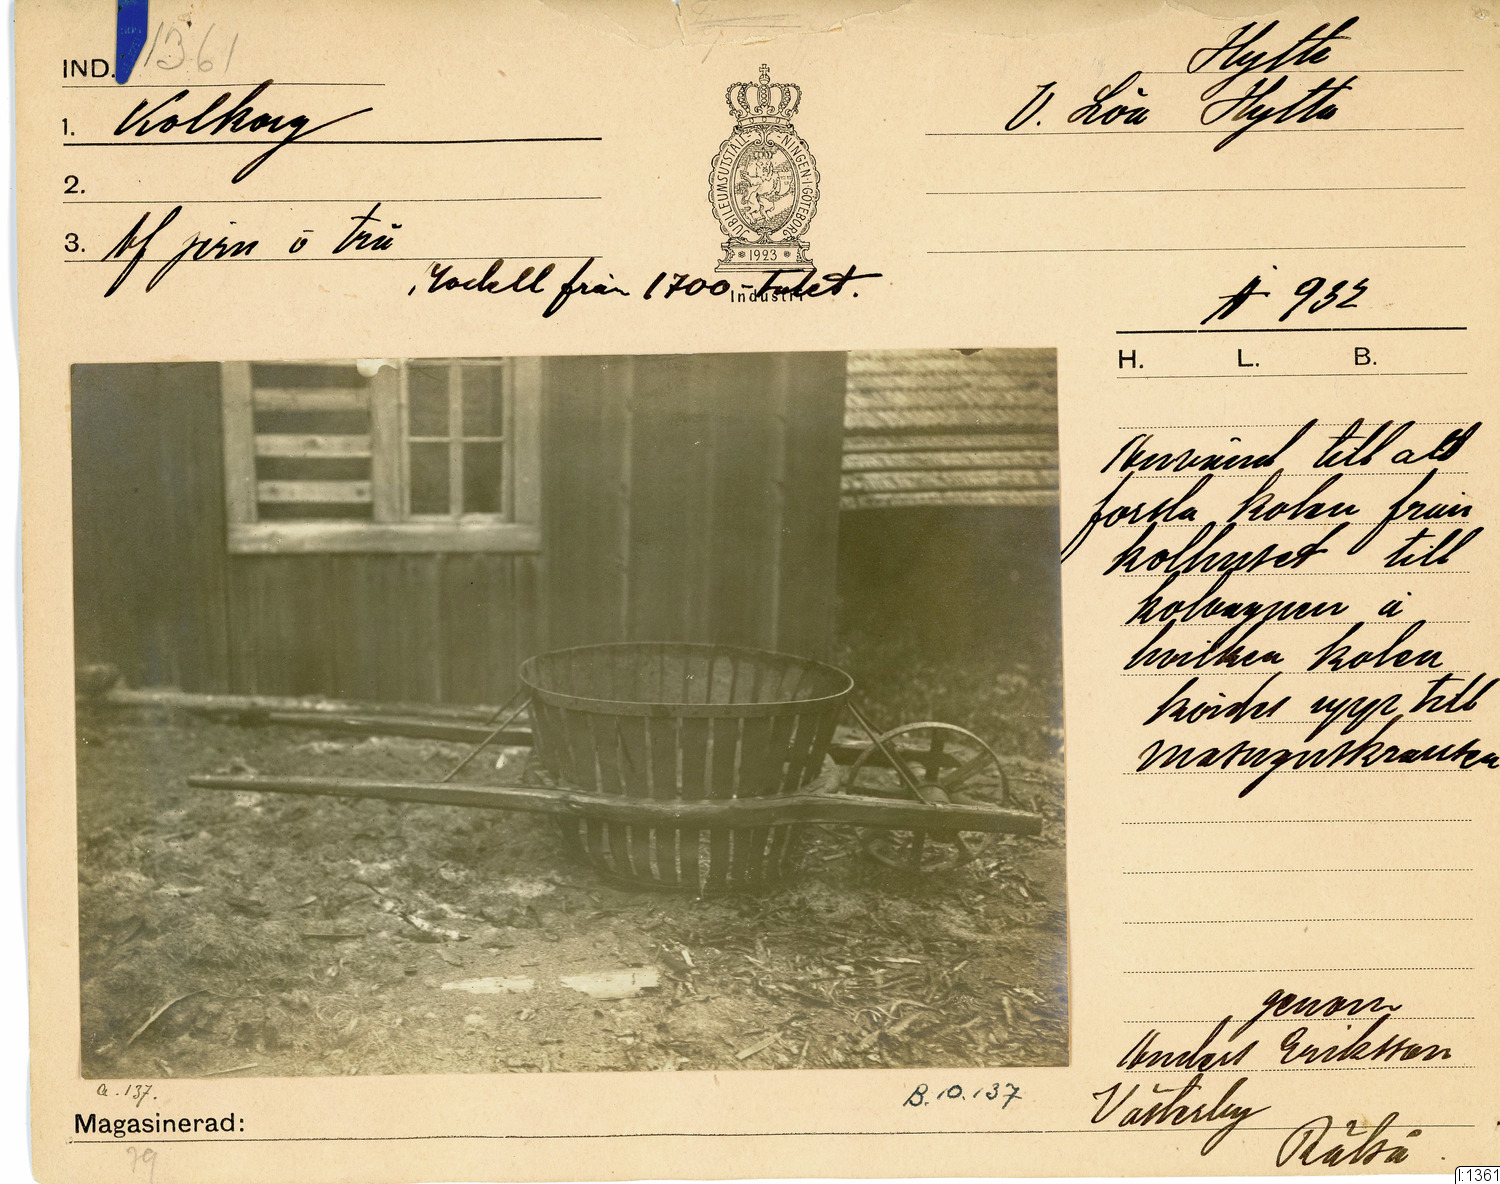 IND. 1361
Hytte
1. Kolkorg
V. Löa Hytta
2.
3. Af jern o trä
Modell från 1700-talet.
JUBILEUMSUTSTÄLLNINGEN I GÖTEBORG
1923
Industri
A 932
H. L. B.
Använd till att
forsla kolen från
kolhuset till
kolvagnen å
hvilken kolen
kördes upp till
masugnskransen
genom
Anders Eriksson
Västerby
Rålså.
a. 137.
B. 10. 137
Magasinerad:
79
I:1361